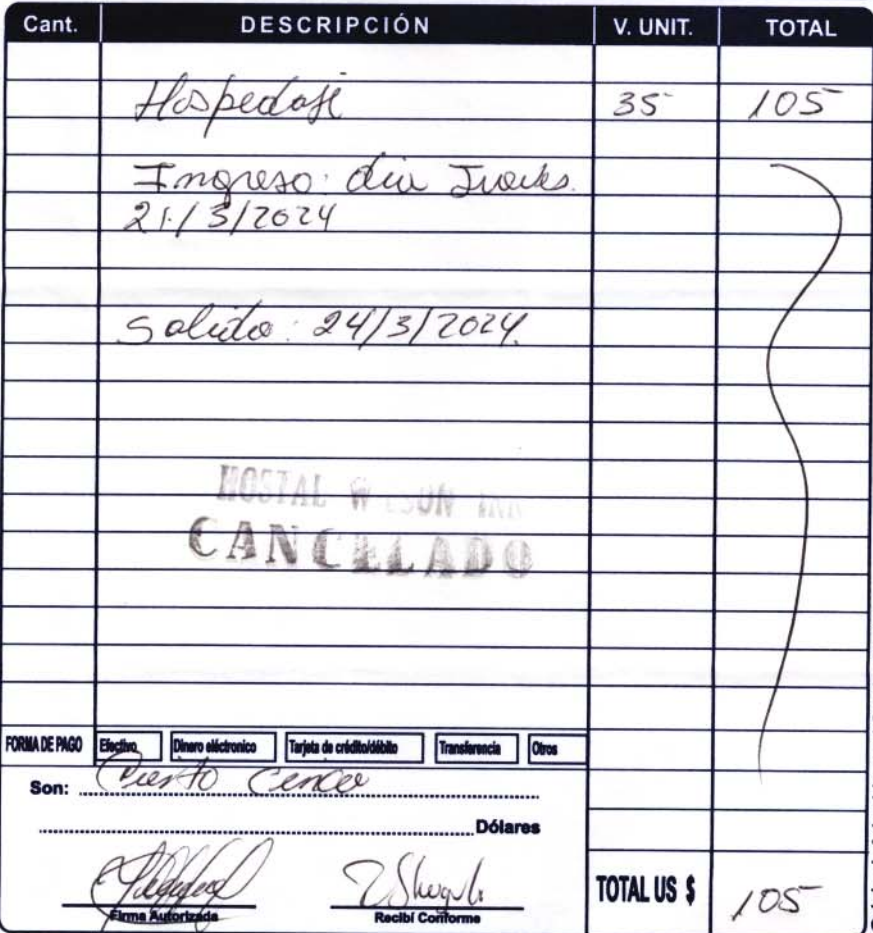 Cant. DESCRIPCIÓN V. UNIT. TOTAL
Hospedaje 35 105
Ingreso: dia Jueves.
21/3/2024
Salida: 24/3/2024.
HOSTAL
CANCELADO
FORMA DE PAGO Efectivo Dinero eléctronico Tarjeta de crédito/débito Transferencia Otros
Son: Ciento Cinco
Dólares
Firma Autorizada Recibí Conforme
TOTAL US $ 105